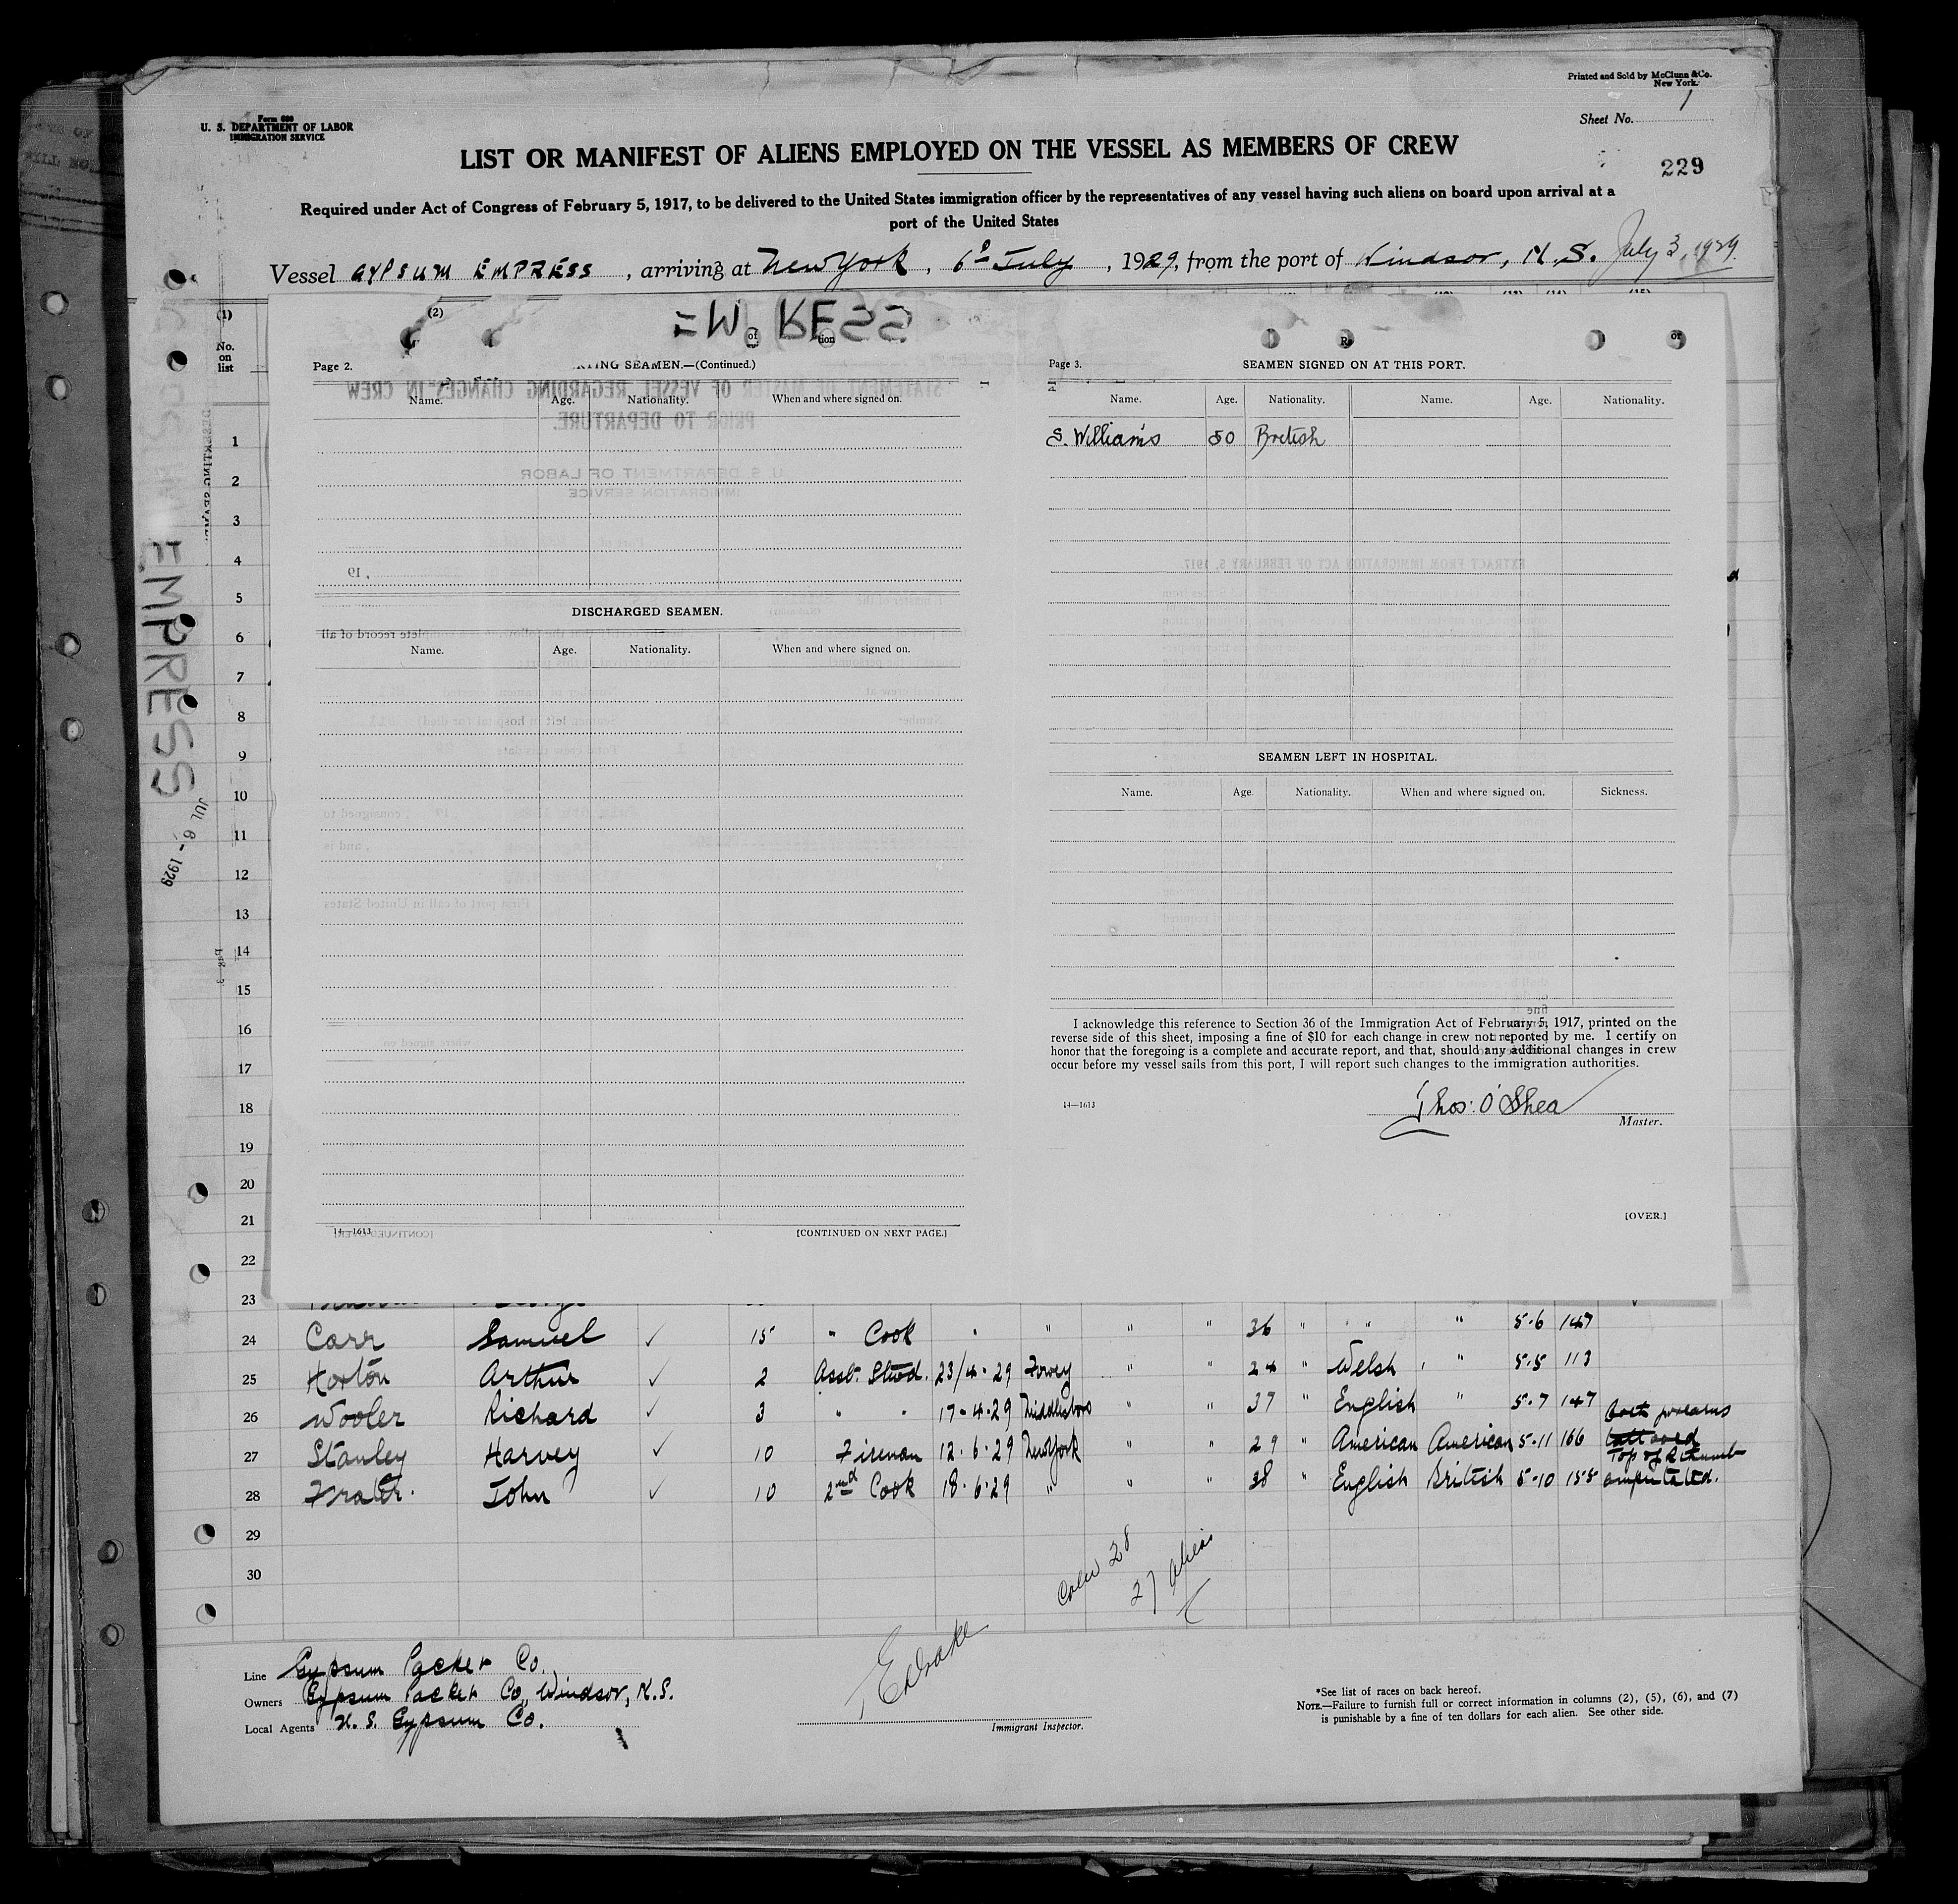 Printed and Sold by McClunn & Co.
New York.
Form 680
U. S. DEPARTMENT OF LABOR
IMMIGRATION SERVICE
Sheet No. 1
LIST OR MANIFEST OF ALIENS EMPLOYED ON THE VESSEL AS MEMBERS OF CREW
229
Required under Act of Congress of February 5, 1917, to be delivered to the United States immigration officer by the representatives of any vessel having such aliens on board upon arrival at a
port of the United States
Vessel GYPSUM EMPRESS, arriving at New York, 6th July, 1929, from the port of Windsor, N.S. July 3, 1929
(1)
(2)
No. on list
EMPRESS
JUL 6 - 1929
Page 2.
SEAMEN.—(Continued.)
Name. Age. Nationality. When and where signed on.
DISCHARGED SEAMEN.
Name. Age. Nationality. When and where signed on.
14—1613
[CONTINUED ON NEXT PAGE.]
Page 3.
SEAMEN SIGNED ON AT THIS PORT.
Name. Age. Nationality. Name. Age. Nationality.
S. Williams 50 British
SEAMEN LEFT IN HOSPITAL.
Name. Age. Nationality. When and where signed on. Sickness.
I acknowledge this reference to Section 36 of the Immigration Act of February 5, 1917, printed on the
reverse side of this sheet, imposing a fine of $10 for each change in crew not reported by me. I certify on
honor that the foregoing is a complete and accurate report, and that, should any additional changes in crew
occur before my vessel sails from this port, I will report such changes to the immigration authorities.
14—1613
Thos: O'Shea
Master.
[OVER.]
1
2
3
4
5
6
7
8
9
10
11
12
13
14
15
16
17
18
19
20
21
22
23
24 Carr Samuel ✓ 15 " Cook " " " " 36 " " " 5-6 147
25 Horton Arthur ✓ 2 Asst. Stwd. 23/4-29 Fowey " " 24 " Welsh " 5-5 113
26 Wooler Richard ✓ 3 " " 17-4-29 Middlesboro " " 37 " English " 5-7 147
27 Stanley Harvey ✓ 10 Fireman 12-6-29 New York " " 29 " American American 5-11 166 both forearms tattooed
28 Frater John ✓ 10 2nd Cook 18-6-29 " " " 38 " English British 5-10 155 Top of R thumb amputated.
29
30
Crew 28
27 aliens
Line Gypsum Packet Co.
Owners Gypsum Packet Co, Windsor, N.S.
Local Agents U. S. Gypsum Co.
Immigrant Inspector.
*See list of races on back hereof.
NOTE.—Failure to furnish full or correct information in columns (2), (5), (6), and (7)
is punishable by a fine of ten dollars for each alien. See other side.